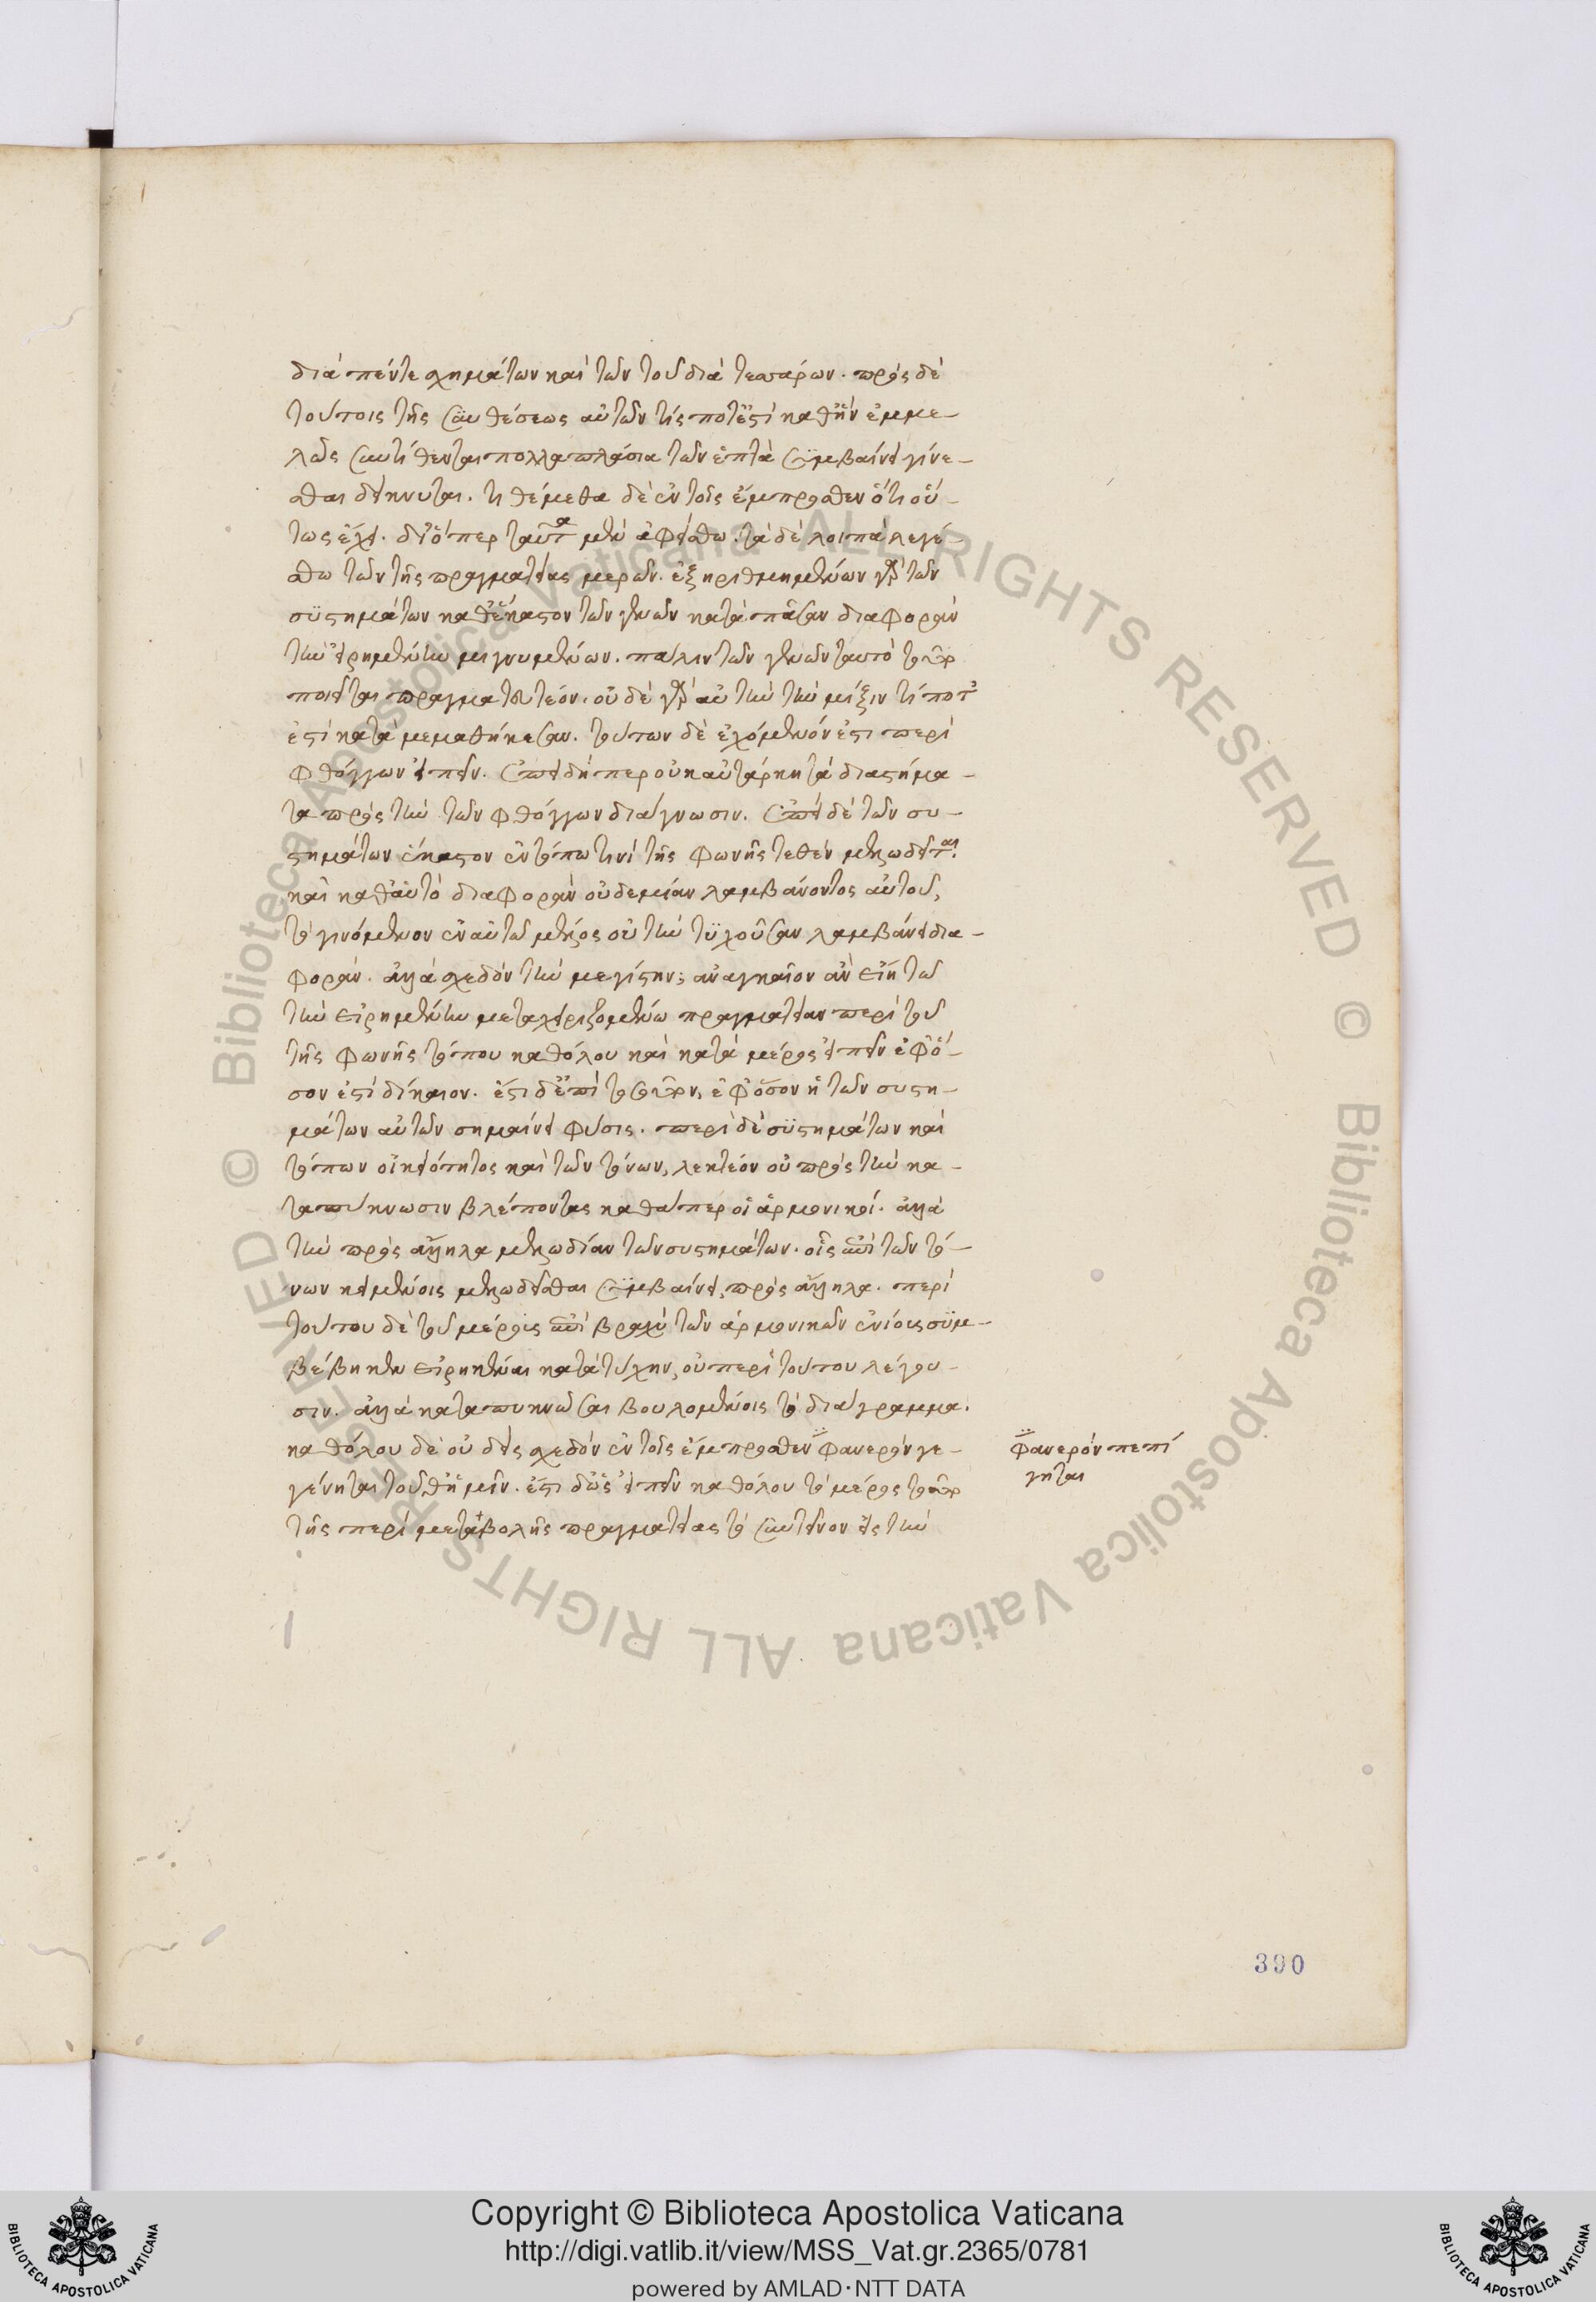 διὰ πέντε σχημάτων καὶ τῶν τοῦ διὰ τεσσάρων. πρὸς δὲ
τούτοις τῆς συνθέσεως αὐτῶν τίς ποτ' ἐστὶ καθ' ἣν ἐμμε-
λῶς συντίθενται πολλαπλάσια τῶν ἑπτὰ συμβαίνει γίνε-
σθαι δείκνυται. τιθέμεθα δὲ ἐν τοῖς ἔμπροσθεν ὅτι οὕ-
τως ἔχει. διόπερ ταῦτα μὲν ἀφείσθω. τὰ δὲ λοιπὰ λεγέ-
σθω τῶν τῆς πραγματείας μερῶν. ἐξηριθμημένων γὰρ τῶν
συστημάτων καθ' ἕκαστον τῶν γενῶν κατὰ πᾶσαν διαφορὰν
τὴν εἰρημένην μιγνυμένων. πάλιν τῶν γενῶν ταυτὸ τοῦτο
ποιεῖται πραγματευτέον. οὐδὲ γὰρ αὐτὴν τὴν μίξιν τί ποτ'
ἐστὶ καταμεμαθήκεσαν. τούτων δὲ ἐχόμενόν ἐστι περὶ
φθόγγων εἰπεῖν. ἐπειδήπερ οὐκ αὐτάρκη τὰ διαστήμα-
τα πρὸς τὴν τῶν φθόγγων διάγνωσιν. ἐπεὶ δὲ τῶν συ-
στημάτων ἕκαστον ἐν τόπῳ τινὶ τῆς φωνῆς τεθὲν μελῳδεῖται.
καὶ καθ' αὑτὸ διαφορὰν οὐδεμίαν λαμβάνοντος αὐτοῦ,
τὸ γινόμενον ἐν αὐτῷ μέλος οὐ τὴν τυχοῦσαν λαμβάνει δια-
φοράν. ἀλλὰ σχεδὸν τὴν μεγίστην, ἀναγκαῖον ἂν εἴη τῷ
τὴν εἰρημένην μεταχειριζομένῳ πραγματείαν περὶ τοῦ
τῆς φωνῆς τόπου καθόλου καὶ κατὰ μέρος εἰπεῖν ἐφ' ὅ-
σον ἐστὶ δίκαιον. ἔστι δ' ἐπὶ τοσοῦτον, ἐφ' ὅσον ἡ τῶν συστη-
μάτων αὐτῶν σημαίνει φύσις. περὶ δὲ συστημάτων καὶ
τόπων οἰκειότητος καὶ τῶν τόνων, λεκτέον οὐ πρὸς τὴν κα-
ταπύκνωσιν βλέποντας καθάπερ οἱ ἁρμονικοί. ἀλλὰ
τὴν πρὸς ἄλληλα μελῳδίαν τῶν συστημάτων. οἷς ἐπὶ τῶν τό-
νων κειμένοις μελῳδεῖσθαι συμβαίνει, πρὸς ἄλληλα. περὶ
τούτου δὲ τοῦ μέρους ἐπὶ βραχὺ τῶν ἁρμονικῶν ἐνίοις συμ-
βέβηκεν εἰρηκέναι κατὰ τύχην, οὐ περὶ τούτου λέγου-
σιν. ἀλλὰ καταπυκνῶσαι βουλομένοις τὸ διάγραμμα.
καθόλου δὲ οὐδεὶς σχεδὸν ἐν τοῖς ἔμπροσθεν φανερὸν γε-
γένηται τοῦθ' ἡμῖν. ἔστι δ' ὡς εἰπεῖν καθόλου τὸ μέρος τοῦτο
τῆς περὶ μεταβολῆς πραγματείας τὸ συντεῖνον εἰς τὴν
φανερὸν πεπί
γηται
390
Copyright © Biblioteca Apostolica Vaticana
http://digi.vatlib.it/view/MSS_Vat.gr.2365/0781
powered by AMLAD·NTT DATA